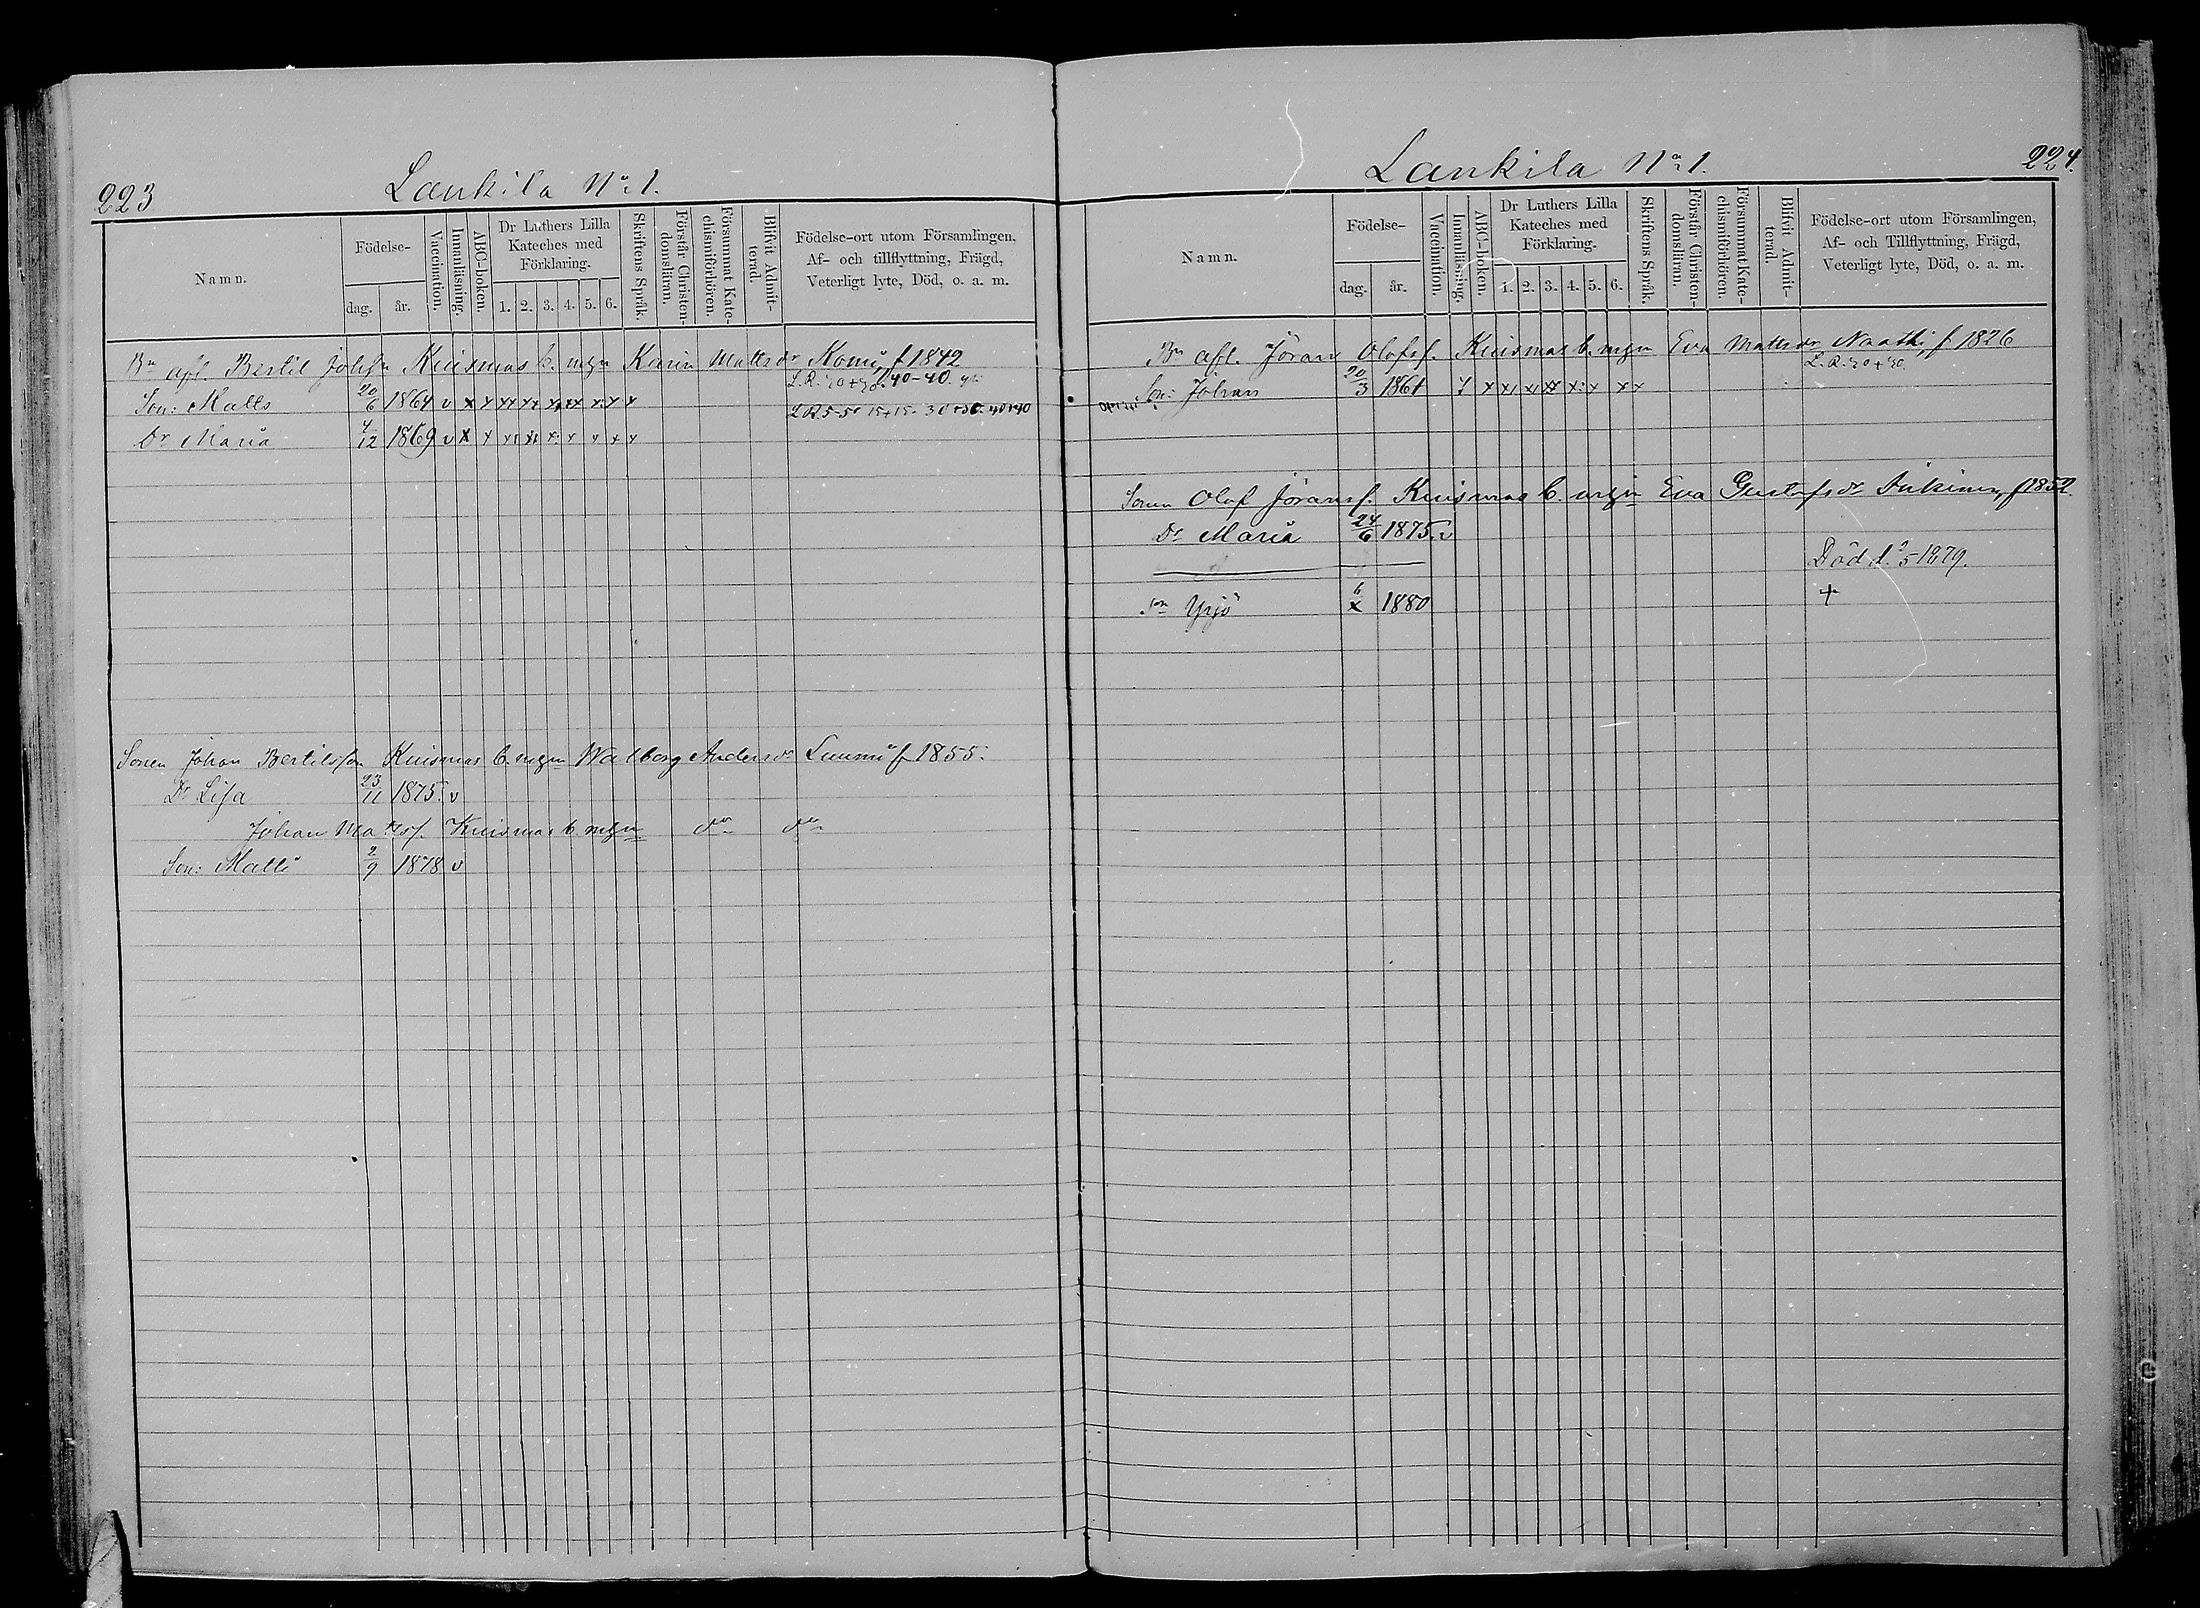 223
Lankila No 1.
Namn.
Födelse-
dag.
år.
Vaccination.
Innanläsning.
ABC-boken.
Dr Luthers Lilla
Kateches med
Förklaring.
1. 2. 3. 4. 5. 6.
Skriftens Språk.
Förstår Christen-
domsläran.
Försummat Kate-
chismiförhören.
Blifvit Admit-
terad.
Födelse-ort utom Församlingen,
Af- och tillflyttning, Frägd,
Veterligt lyte, Död, o. a. m.
Bn afl. Bertil Johsn Kuismas b. m hgn Karin Mattsdr Komi, f 1842
Son: Matts 20/6 1864 v x x xx xx xx xx x x x
40-40.
Dr Maria 4/12 1869 v x x x x x x x x x
L R 5-5 15+15 30+30 40+40
Sonen Johan Bertilsson Kuismas b. m hgn Walborg Andersdr f 1855.
Dr Lisa 23/11 1875. v
Johan Mattsf. Kuismas b m hgn do do
Son: Matti 2/9 1878 v
Lankila No 1.
224.
Namn.
Födelse-
dag.
år.
Vaccination.
Innanläsning.
ABC-boken.
Dr Luthers Lilla
Kateches med
Förklaring.
1. 2. 3. 4. 5. 6.
Skriftens Språk.
Förstår Christen-
domsläran.
Försummat Kate-
chismiförhören.
Blifvit Admit-
terad.
Födelse-ort utom Församlingen,
Af- och Tillflyttning, Frägd,
Veterligt lyte, Död, o. a. m.
Bn afl. Jöran Olofsf. Kuismas b. m hgn Eva Mattsdr f 1826
Son: Johan 20/3 1861 x x x x xx x x x x
Sonen Olof Jöransf. Kuismas b. m hgn Eva Gustafsdr f 1852.
Dr Maria 24/6 1875. v
Död d. 5 1879.
Son Yrjö 6/x 1880 +